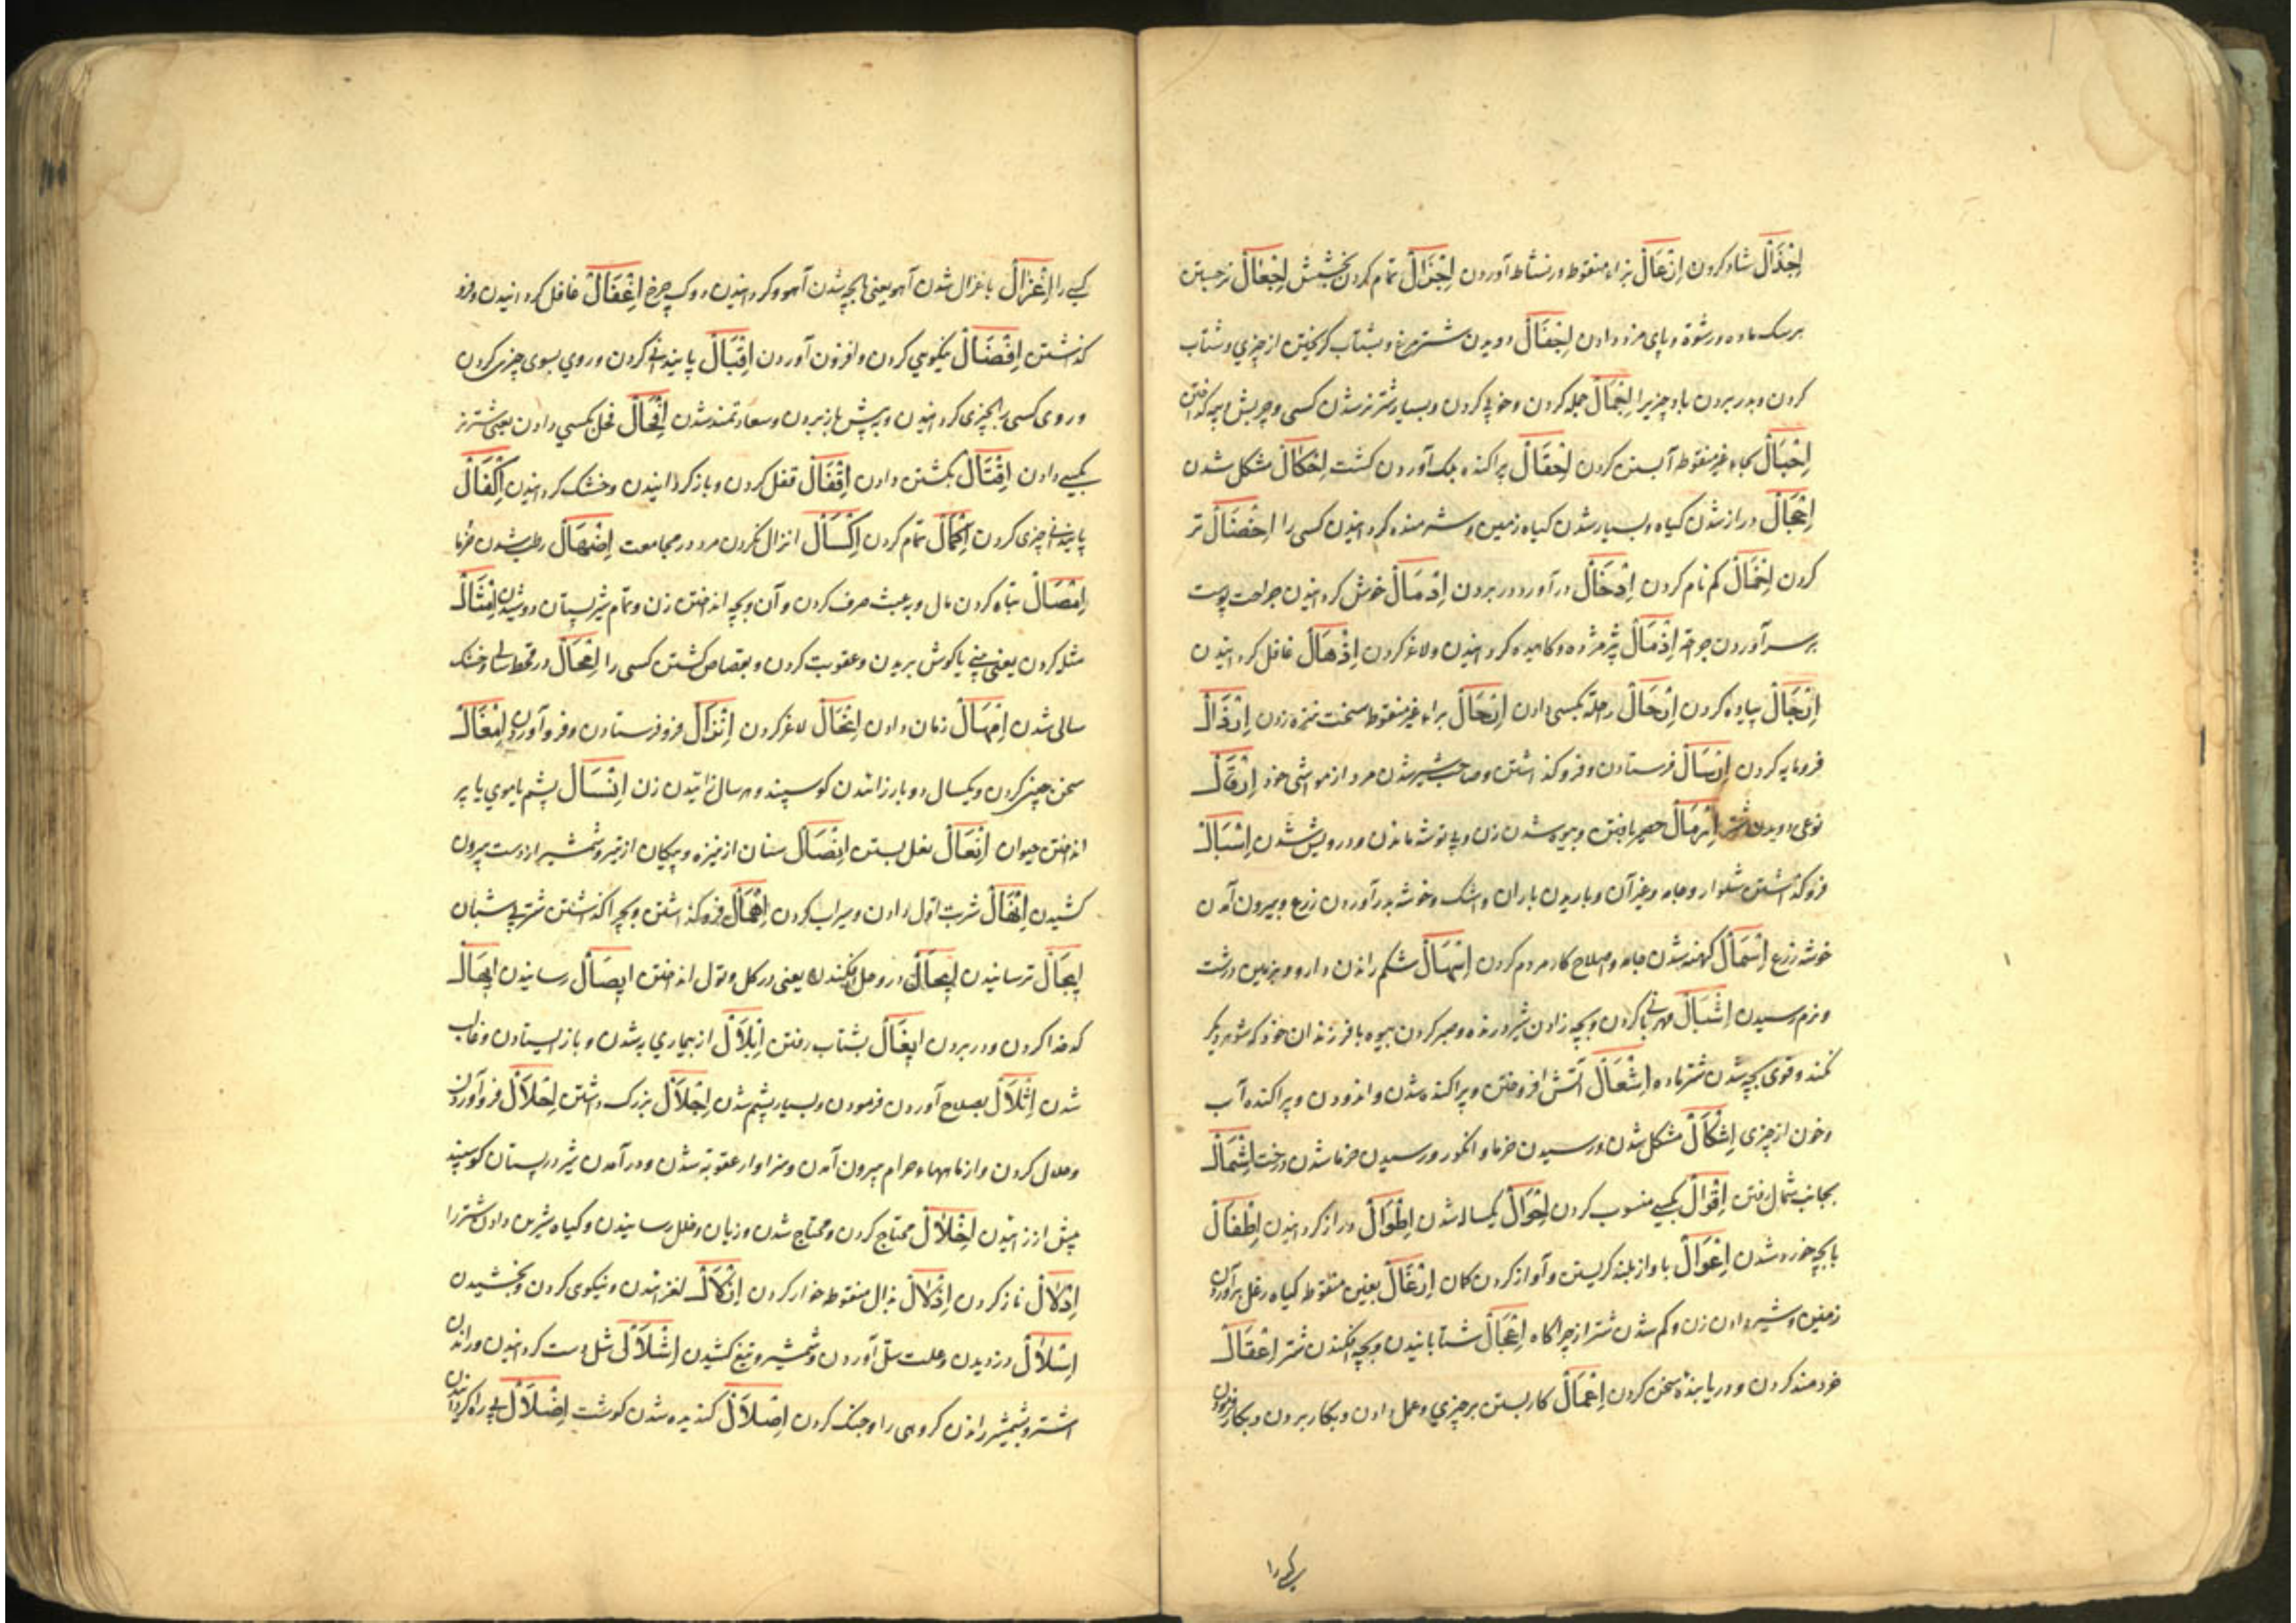 اِجْذَالْ شاد کردن اِزْعَالْ بزاء منقوطه در نشاط آوردن اِجْزَالْ تمام کردن بخشش اِجْعَالْ نر جستن
بر سک ماده و رشوة و پای مزد دادن اِجْفَالْ دویدن شتر مرغ و بشتاب کریختن از چیزي و شتاب
کردن و بدر بردن باد چیزیرا اِجْمَالْ جمله کردن و خوبی کردن و بسیار شتر نر شدن کسی و چربش
اِحْبَالْ بحاء غیر منقوطه آبستن کردن اِحْقَالْ پراکنده بلک آوردن کشت اِحْكَالْ مشکل شدن
اِخْجَالْ دراز شدن کیاه و بسیار شدن کیاه زمین و شرمنده کردانیدن کسی را اِخْضَالْ تر
کردن اِخْمَالْ کم نام کردن اِدْخَالْ درآورد و در بردن اِدْمَالْ خوش کردانیدن جراحت پوست
بر سر آوردن جراحة اِذْمَالْ پژمژده و کاهیده کردانیدن و لاغر کردن اِذْهَالْ غافل کردانیدن
اِرْجَالْ پیاده کردن اِرْحَالْ راحلة بکسی دادن اِرْحَالْ براء غیر منقوطه سخت نیزه زدن اِرْذَالْ
فرومایه کردن اِرْسَالْ فرستادن و فرو کذاشتن و صاحب شیر شدن مرد از مواشی خود اِرْقَالْ
نوعی دویدن شتر اِرْمَالْ حصیر بافتن و بیوه شدن زن و بی توشه ماندن و درویش شدن اِسْبَالْ
فرو کذاشتن شلوار و جامه و غیر آن و باریدن باران و اشک و خوشه بدر آوردن زرع و بیرون آمدن
خوشه زرع اِسْمَالْ کهنه شدن جامه و اصلاح کار مردم کردن اِسْهَالْ شکم راندن دارو و بزمین درشت
و نرم رسیدن اِشْبَالْ مهربانی کردن و بچه زادن شیر درنده و صبر کردن بیوه با فرزندان خود که شوهر دیکر
نکند و قوی بچه شدن شتر ماده اِشْعَالْ آتش افروختن و پراکنده شدن و اندودن و پراکنده آب
و خون از چیزی اِشْكَالْ مشکل شدن و رسیدن خرما و انکور و رسیدن خرما شدن درخت اِشْمَالْ
بجانب شمال رفتن اِقْوَالْ بکسے منسوب کردن اِحْوَالْ یکساله شدن اِطْوَالْ دراز کردانیدن اِطْفَالْ
با بچه خورد شدن اِعْوَالْ باواز بلند کریستن و آواز کردن کمان اِرْغَالْ بغین منقوطه کیاه رغل برآوردن
زمین و شیر دادن زن و کم شدن شتر از چراکاه اِعْجَالْ شتابانیدن و بچه افکندن شتر اِعْقَالْ
خردمند کردن و دریابنده سخن کردن اِعْمَالْ کار بستن بر چیزي و عمل دادن و بکار بردن و بکار فرمودن
کسے را
کسے را اِغْزَالْ با غزال شدن آهو یعنی با بچه شدن آهو و کردانیدن دوک چرخ اِغْفَالْ غافل کردانیدن و فرو
کذاشتن اِفْضَالْ نیکویي کردن و افزون آوردن اِقْبَالْ پایندانی کردن و روي بسوی چیزی کردن
و روی کسی را بچیزی کردانیدن و بپیش باز بردن و سعادتمند شدن اِفْحَالْ فحل بکسي دادن یعنی شتر نر
بکسے دادن اِقْتَالْ بکشتن دادن اِقْفَالْ قفل کردن و باز کردانیدن و خشک کردانیدن اِكْفَالْ
پایندانی چیزی کردن اِكْمَالْ تمام کردن اِكْسَالْ انزال نکردن مرد در مجامعت اِضْهَالْ رطب شدن خرما
اِمْصَالْ تباه کردن مال و بعبث صرف کردن و آن و بچه انداختن زن و تمام شیر پستان دوشیدن اِمْثَالْ
مثله کردن یعنی بینی یا کوش بریدن و عقوبت کردن و بقصاص کشتن کسی را اِمْحَالْ در قحط سالی و خشک
سالی شدن اِمْهَالْ زمان دادن اِنْحَالْ لاغر کردن اِنْزَالْ فرو فرستادن و فرو آوردن اِمْغَالْ
سخن چینی کردن و یکسال دو بار زائیدن کوسپند و هر سال زائیدن زن اِنْسَالْ پشم یا موي یا پر
انداختن حیوان اِنْعَالْ نعل بستن اِنْصَالْ سنان از نیزه و پیکان از تیر و شمشیر از دست بیرون
کشیدن اِنْهَالْ شربت اول دادن و سیراب کردن اِهْمَالْ فرو کذاشتن و بچرا کذاشتن شتر بی شبان
اِیجَالْ ترسانیدن اِیحَالْ در وحل افکندن یعنی در کل و لول انداختن ایصَالْ رسانیدن اِیحَالْ
کدخدا کردن و در بردن ایغَالْ بشتاب رفتن اِبْلَالْ از بیماري به شدن و باز ایستادن و غالب
شدن اِثْلَالْ بصلاح آوردن فرمودن و بسیار پشم شدن اِجْلَالْ بزرک داشتن اِحْلَالْ فرو آوردن
و حلال کردن و از ماههاء حرام بیرون آمدن و سزاوار عقوبة شدن و در آمدن شیر در پستان کوسپند
پیش از زائیدن اِخْلَالْ محتاج کردن و محتاج شدن و زیان و خلل رسانیدن و کیاه شیرین دادن شتر را
اِدْلَالْ ناز کردن اِذْلَالْ بذال منقوطه خوار کردن اِزْلَالْ لغزانیدن و نیکوی کردن و بخشیدن
اِسْلَالْ دزدیدن و علت سل آوردن و شمشیر و تیغ کشیدن اِشْلَالْ شل دست کردانیدن و راندن
اشتر و بشمشیر راندن کروهی را و جنک کردن اِصْلَالْ کندیده شدن کوشت اِضْلَالْ بی راه کردانیدن